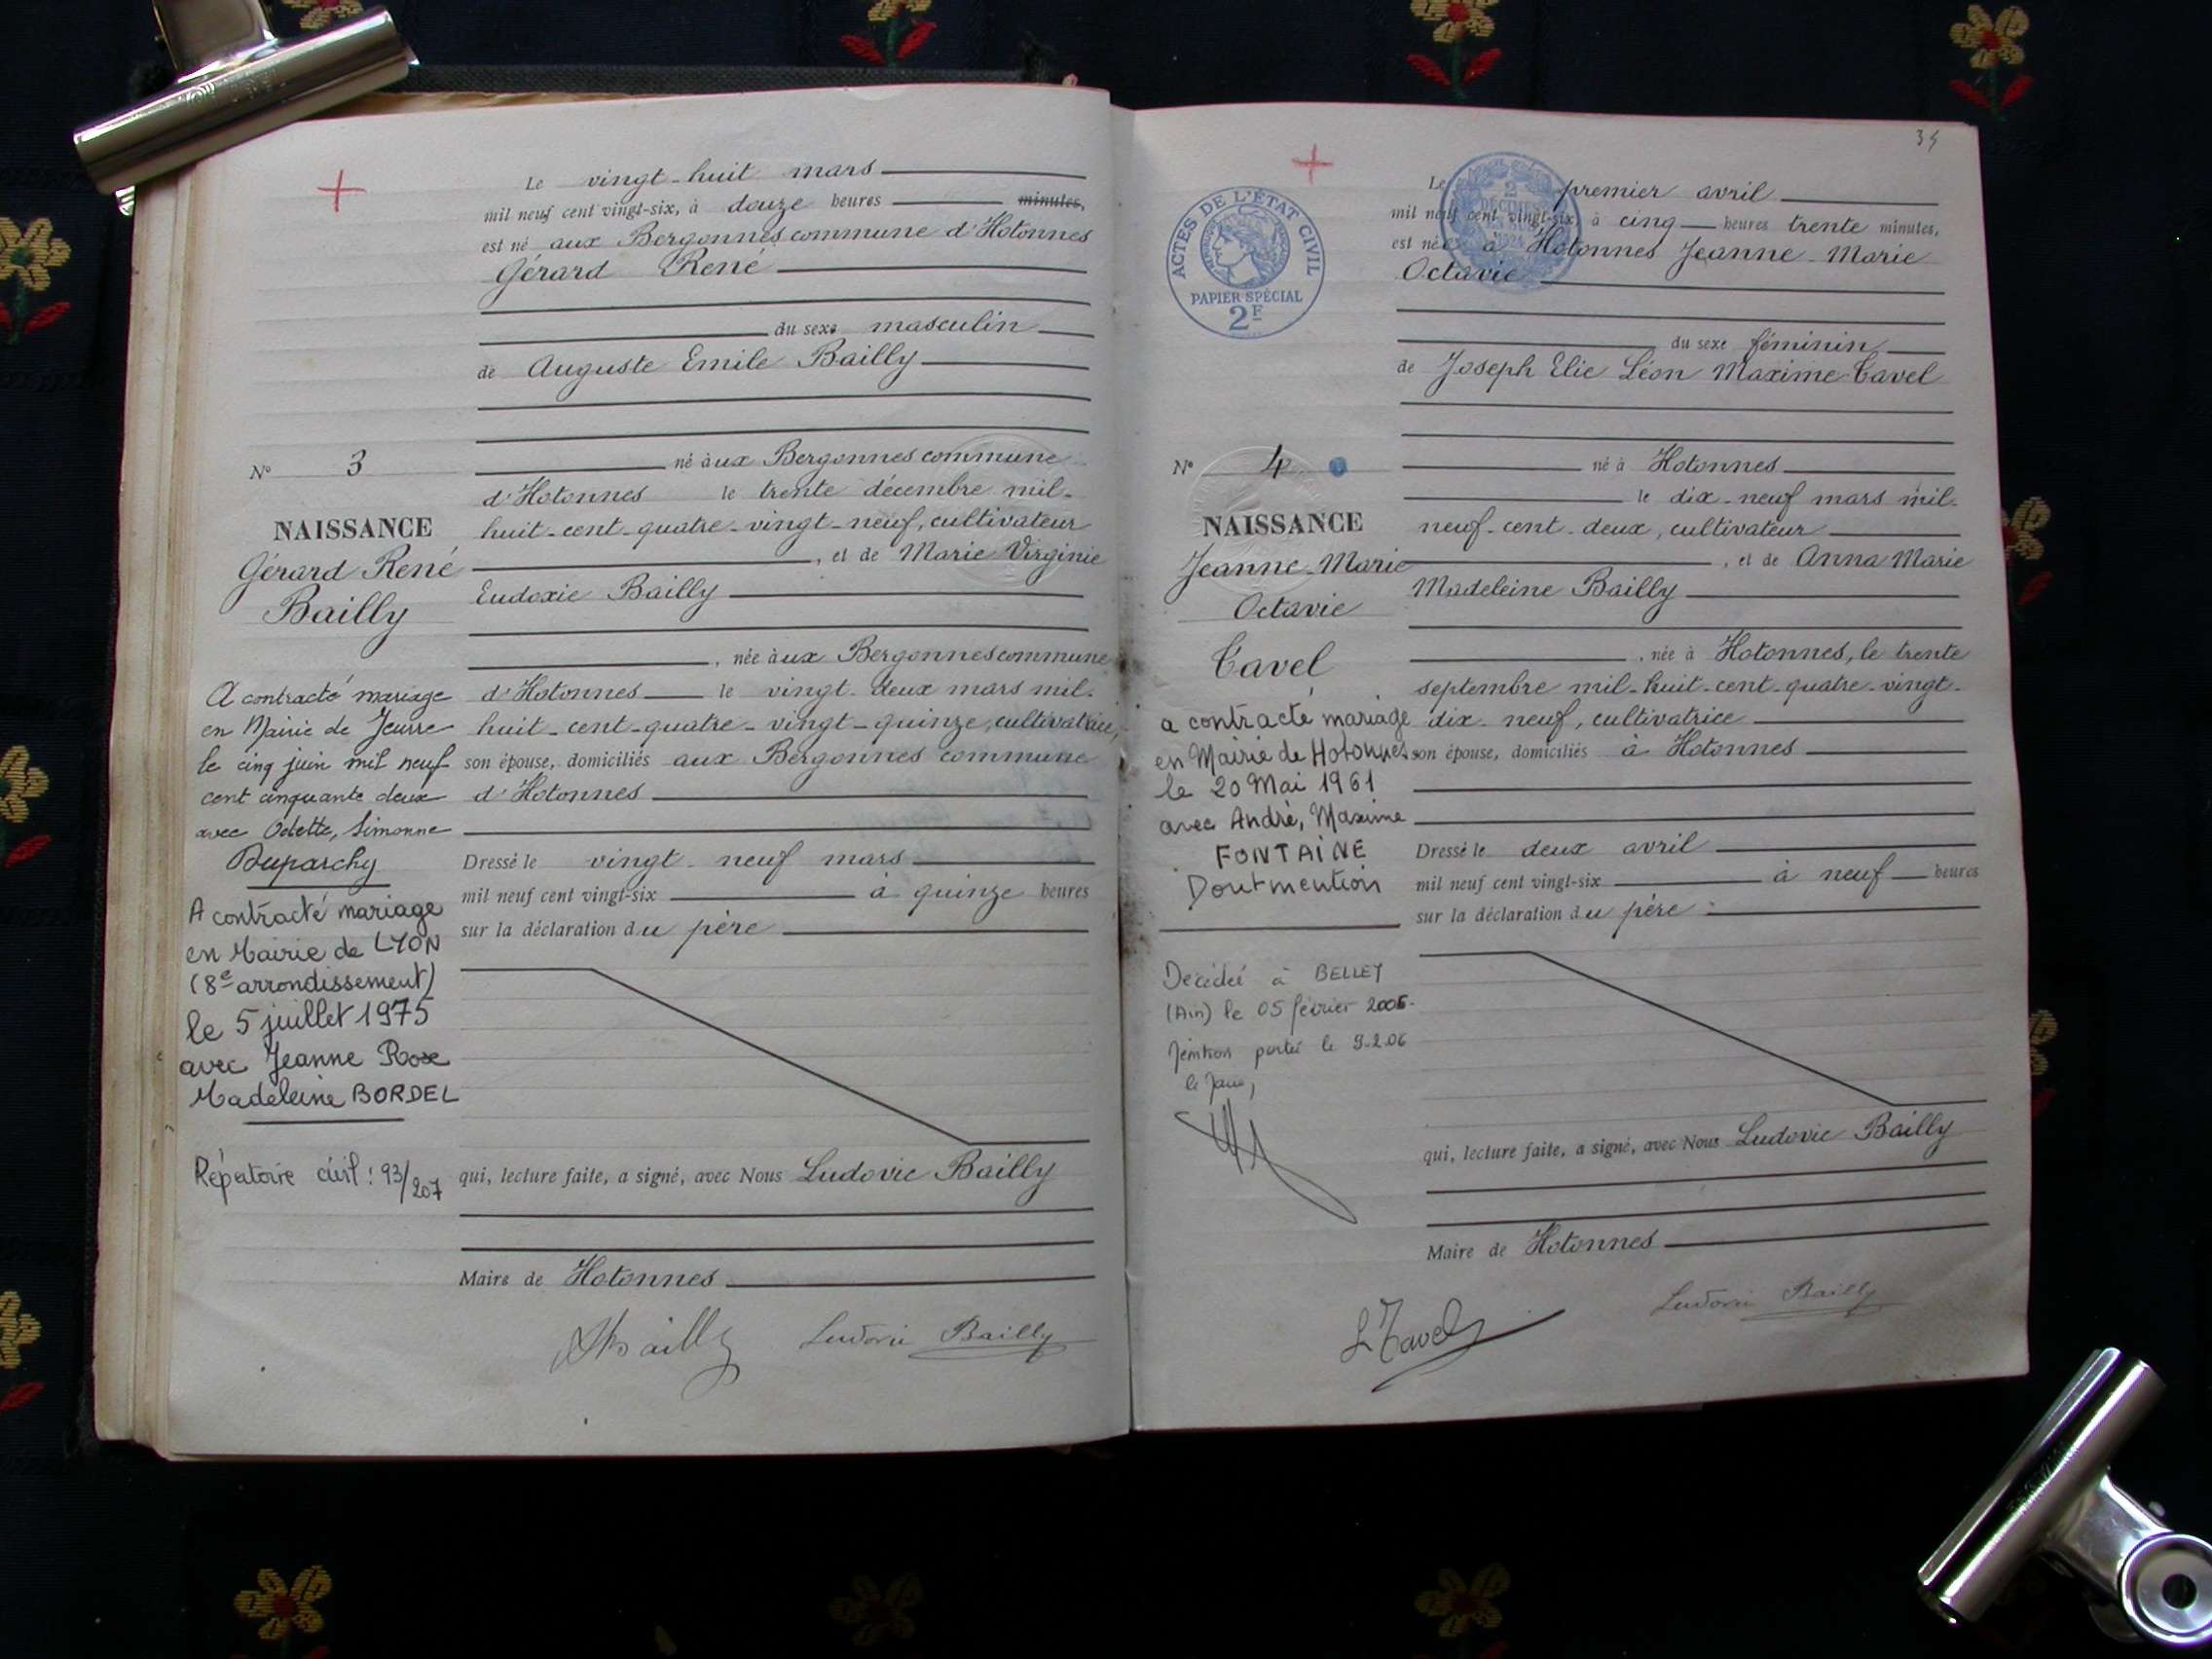 Le vingt-huit mars
mil neuf cent vingt-six, à douze heures minutes,
est né aux Bergonnes commune d'Hotonnes
Gérard René
du sexe masculin
de Auguste Emile Bailly
né à ux Bergonnes commune
d'Hotonnes le trente décembre mil-
huit-cent-quatre-vingt-neuf, cultivateur
, et de Marie Virginie
Eudoxie Bailly
, née à ux Bergonnes commune
d'Hotonnes le vingt-deux mars mil-
huit-cent-quatre-vingt-quinze, cultivatrice,
son épouse, domiciliés aux Bergonnes commune
d'Hotonnes
Dressé le vingt-neuf mars
mil neuf cent vingt-six à quinze heures
sur la déclaration du père
qui, lecture faite, a signé, avec Nous Ludovic Bailly
Maire de Hotonnes
Bailly Ludovic Bailly
N° 3
NAISSANCE
Gérard René
Bailly
A contracté mariage
en Mairie de Jeurre
le cinq juin mil neuf
cent cinquante deux
avec Odette, Simonne
Duparchy
A contracté mariage
en Mairie de LYON
(8e arrondissement)
le 5 juillet 1975
avec Jeanne Rose
Madeleine BORDEL
Répertoire civil : 93/207
34
ACTES DE L'ÉTAT CIVIL
PAPIER SPÉCIAL
2F
2
DÉCIMES
Le premier avril
mil neuf cent vingt-six, à cinq heures trente minutes,
est née à Hotonnes Jeanne-Marie
Octavie
du sexe féminin
de Joseph Elie Léon Maxime Tavel
né à Hotonnes
le dix-neuf mars mil-
neuf-cent-deux, cultivateur
, et de Anna Marie
Madeleine Bailly
, née à Hotonnes, le trente
septembre mil-huit-cent-quatre-vingt-
dix-neuf, cultivatrice
son épouse, domiciliés à Hotonnes
Dressé le deux avril
mil neuf cent vingt-six à neuf heures
sur la déclaration du père
qui, lecture faite, a signé, avec Nous Ludovic Bailly
Maire de Hotonnes
L Tavel Ludovic Bailly
N° 4
NAISSANCE
Jeanne-Marie
Octavie
Tavel
a contracté mariage
en Mairie de Hotonnes
le 20 Mai 1961
avec André, Maxime
FONTAINE
Dont mention
Décédée à BELLEY
(Ain) le 05 février 2006.
mention portée le 9.2.06
le Maire,